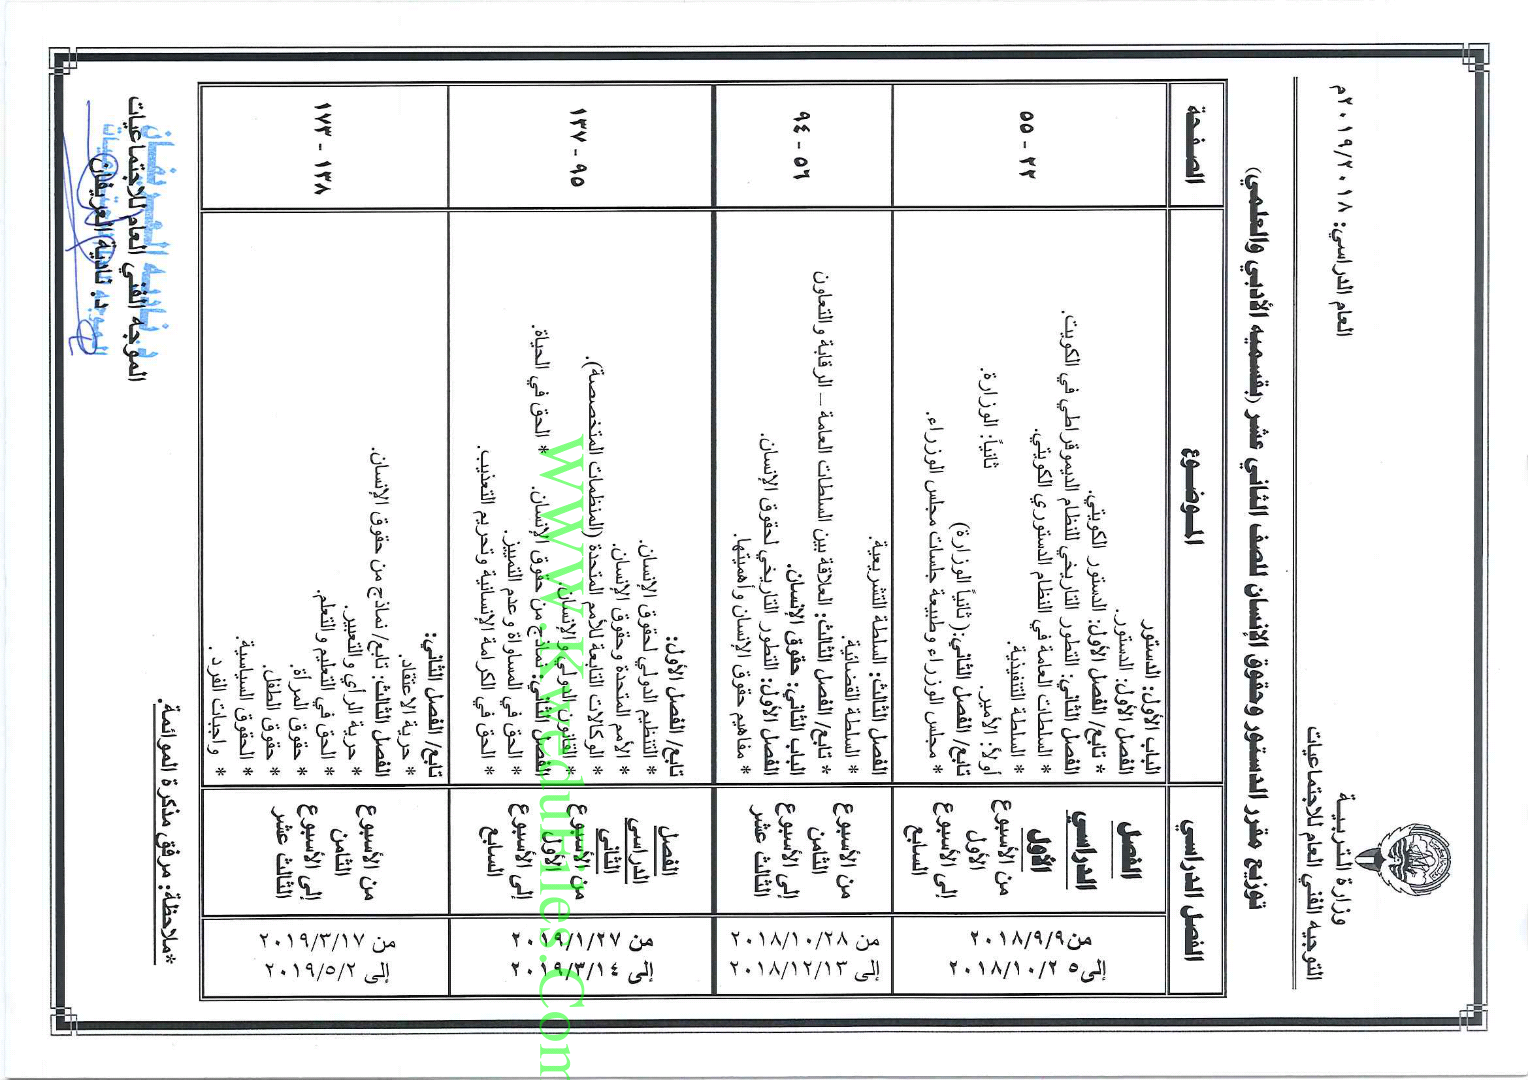 وزارة التربية
التوجيه الفني العام للاجتماعيات
العام الدراسي: ٢٠١٩/٢٠١٨م
توزيع مقرر الدستور وحقوق الإنسان للصف الثاني عشر (بقسميه الأدبي والعلمي)
الفصل الدراسي
الموضوع
الصفحة
الفصل
الدراسي
الأول
من الأسبوع
الأول
إلى الأسبوع
السابع
من ٢٠١٨/٩/٩
إلى ٢٠١٨/١٠/٢٥
الباب الأول: الدستور
الفصل الأول: الدستور.
* تابع/ الفصل الأول: الدستور الكويتي.
الفصل الثاني: التطور التاريخي للنظام الديموقراطي في الكويت.
* السلطات العامة في النظام الدستوري الكويتي.
* السلطة التنفيذية.
أولاً: الأمير. ثانياً: الوزارة.
تابع/ الفصل الثاني: ( ثانياً الوزارة)
* مجلس الوزراء وطبيعة جلسات مجلس الوزراء.
٢٢ - ٥٥
من الأسبوع
الثامن
إلى الأسبوع
الثالث عشر
من ٢٠١٨/١٠/٢٨
إلى ٢٠١٨/١٢/١٣
الفصل الثالث: السلطة التشريعية.
* السلطة القضائية.
* تابع/ الفصل الثالث: العلاقة بين السلطات العامة – الرقابة والتعاون
الباب الثاني: حقوق الإنسان.
الفصل الأول: التطور التاريخي لحقوق الإنسان.
* مفاهيم حقوق الإنسان وأهميتها.
٥٦ - ٩٤
الفصل
الدراسي
الثاني
من الأسبوع
الأول
إلى الأسبوع
السابع
من ٢٠١٩/١/٢٧
إلى ٢٠١٩/٣/١٤
تابع/ الفصل الأول:
* التنظيم الدولي لحقوق الإنسان.
* الأمم المتحدة وحقوق الإنسان.
* الوكالات التابعة للأمم المتحدة (المنظمات المتخصصة).
* القانون الدولي والإنسان.
الفصل الثاني: نماذج من حقوق الإنسان. * الحق في الحياة.
* الحق في المساواة وعدم التمييز.
* الحق في الكرامة الإنسانية وتحريم التعذيب.
٩٥ - ١٣٧
من الأسبوع
الثامن
إلى الأسبوع
الثالث عشر
من ٢٠١٩/٣/١٧
إلى ٢٠١٩/٥/٢
تابع/ الفصل الثاني:
* حرية الاعتقاد.
الفصل الثالث: تابع/ نماذج من حقوق الإنسان.
* حرية الرأي والتعبير.
* الحق في التعليم والتعلم.
* حقوق المرأة.
* حقوق الطفل.
* الحقوق السياسية.
* واجبات الفرد.
١٣٨ - ١٧٣
*ملاحظة: مرفق مذكرة الموائمة.
الموجه الفني العام للاجتماعيات
د. نادية العريفان
Www.KweduFiles.Com